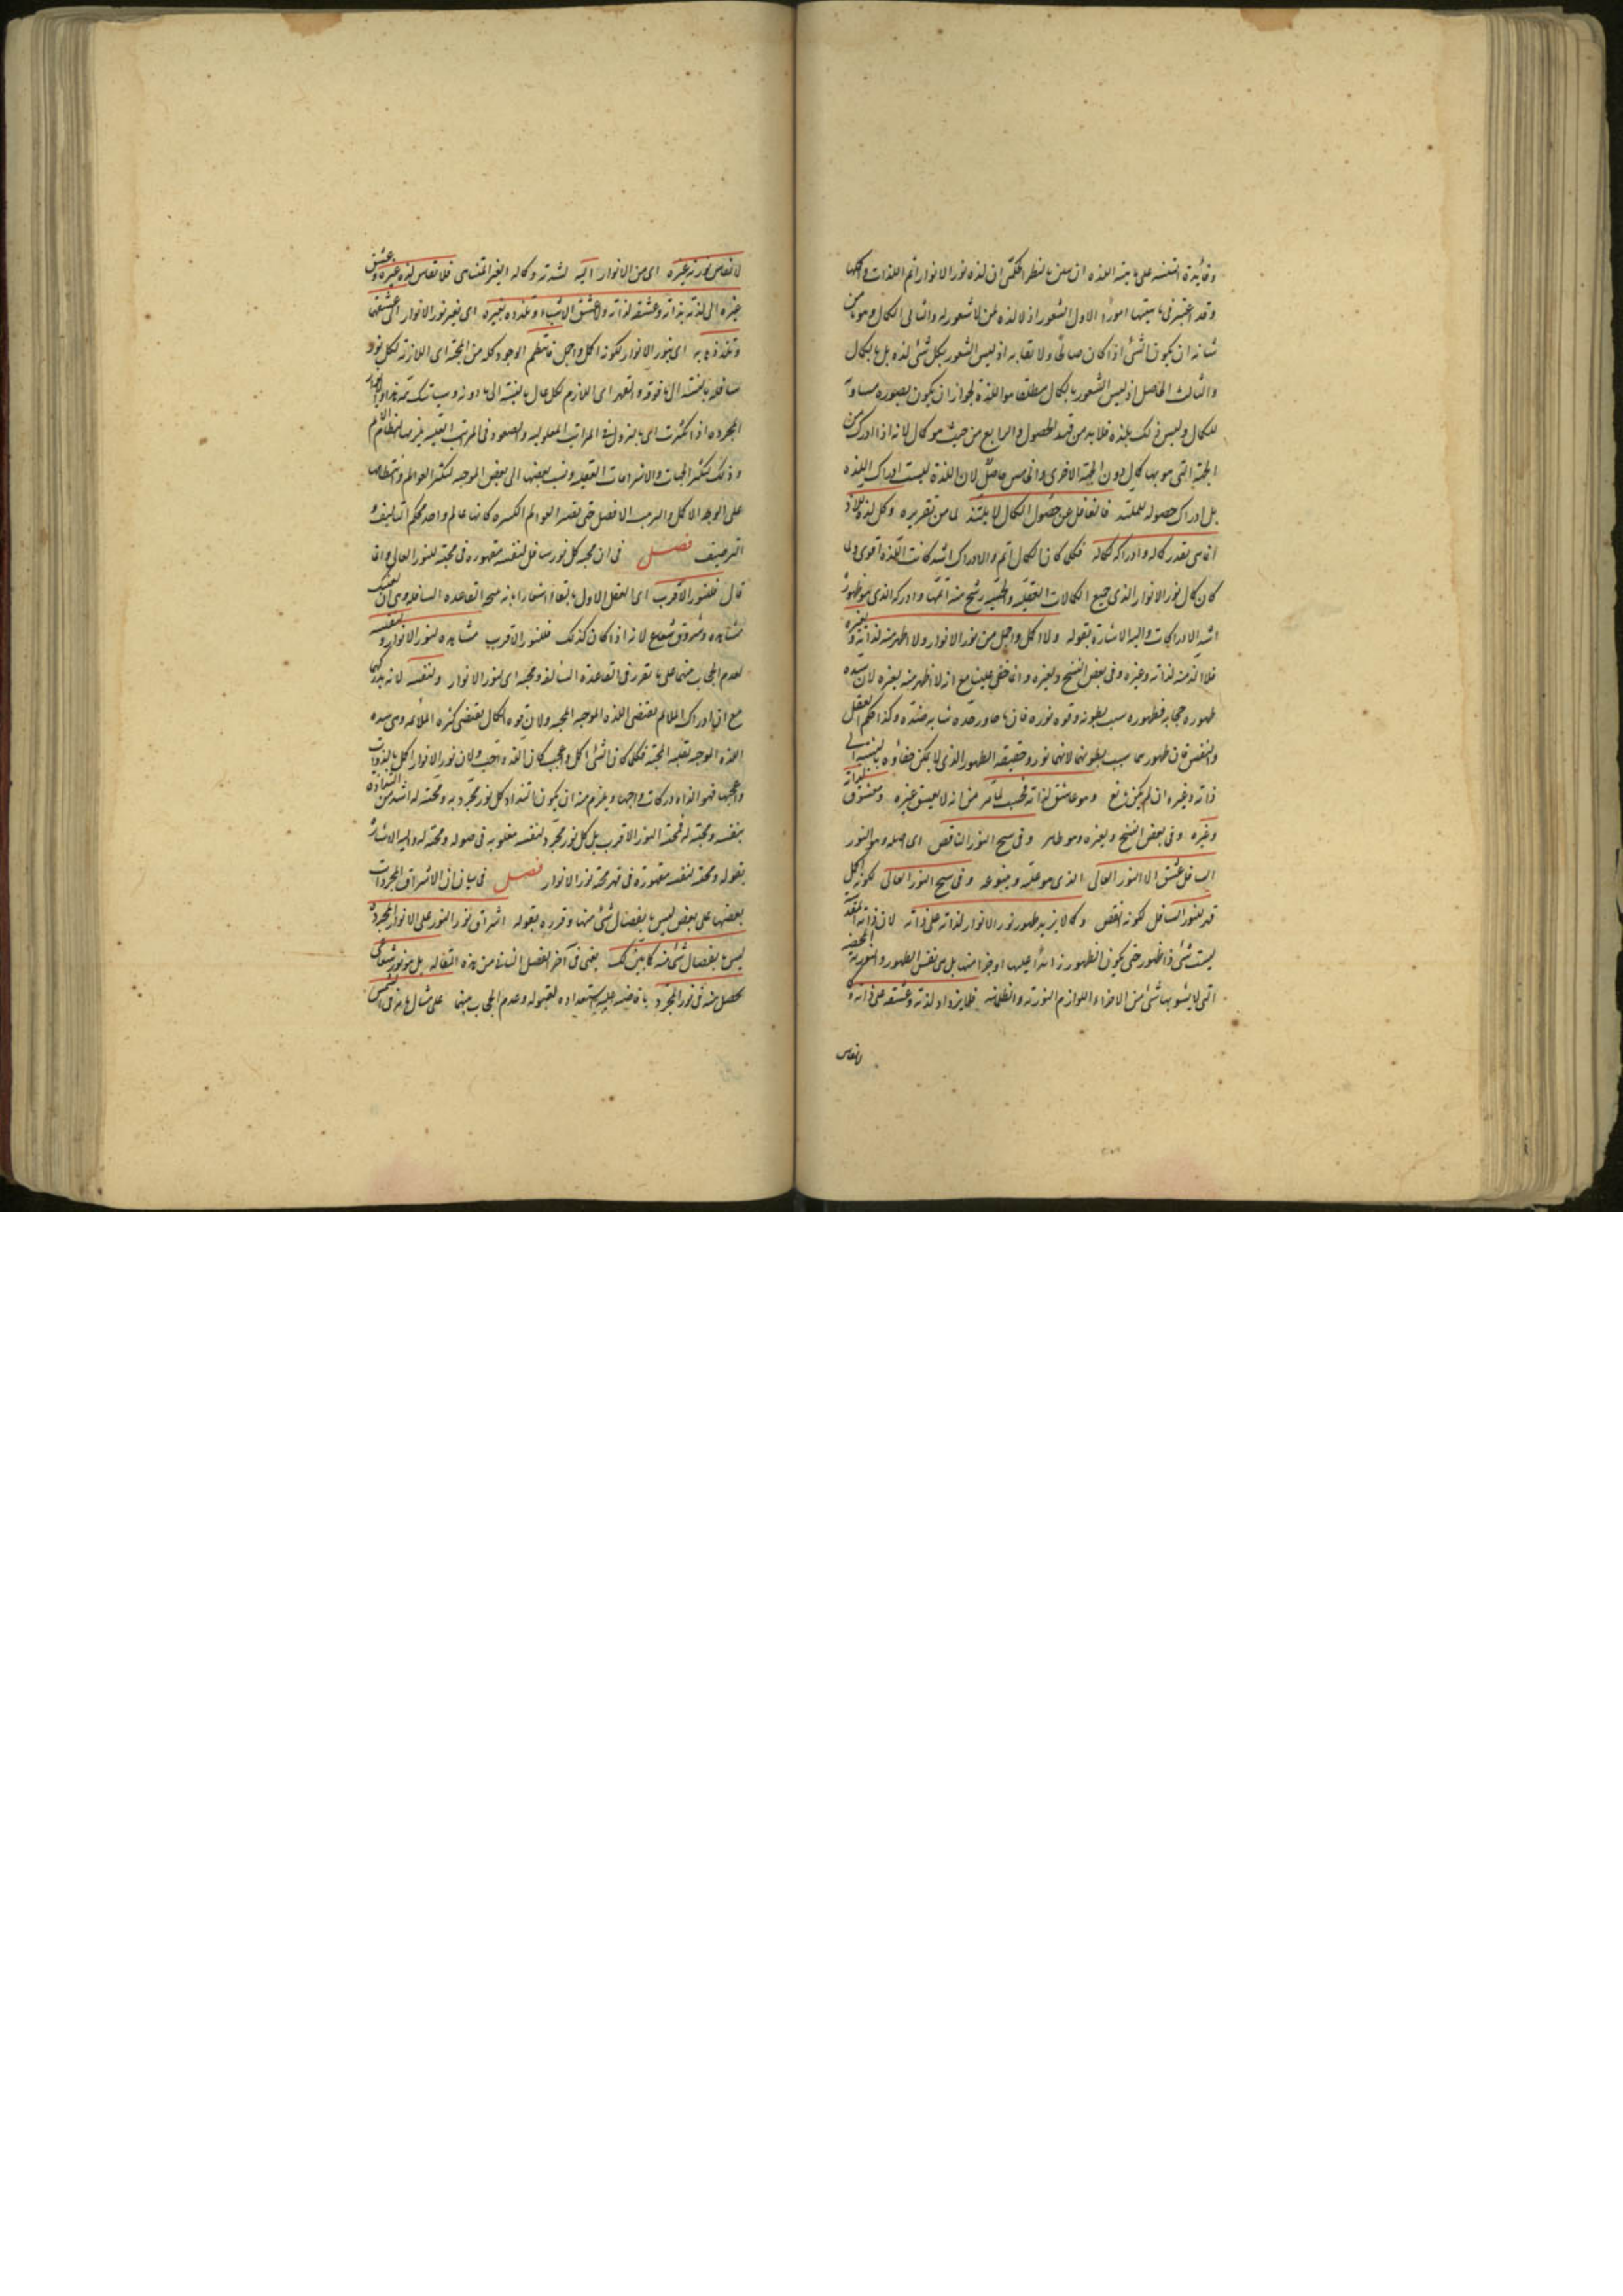 وفائدة التنبيه على ماهية اللذة ان يتبين بالنظر الحكمى ان لذة نور الانوار اتم اللذات واكملها
وقد اعتبر فى ماهيتها امورا الاول الشعور اذ لا لذة لمن لا شعور له والثانى الكمال وهو ما من
شانه ان يكون الشئ اذا كان صالحا ولائقا به اذ ليس الشعور بكل شئ لذة بل بالكمال
والثالث الحاصل اذ ليس الشعور بالكمال مطلقا هو اللذة لجواز ان يكون بصورة مساوية
للكمال وليس ذلك بلذة فلا بد من قيد الحصول والرابع من حيث هو كمال لانه اذا ادرك من
الجهة التى هو بها كمال دون الجهة الاخرى والخامس حاصل لان اللذة ليست ادراك اللذة
بل ادراك حصوله للملتذ فالغافل عن حصول الكمال لا يلتذ لما من تقريره وكل لذة للاذ
انما هى بقدر كماله وادراكه لكماله فكلما كان الكمال اتم والادراك اشد كانت اللذة اقوى ولما
كان كمال نور الانوار الذى جميع الكمالات العقلية والحسية رشح منه اتمها وادراكه الذى هو ظهوره
اشد الادراكات واليه الاشارة بقوله ولا اكمل واجمل من نور الانوار ولا اظهر منه لذاته ولغيره
فلا الذ منه لذاته وغيره وفى بعض النسخ ولغيره وانما خفى علينا مع انه لا اظهر منه لغيره لان شدة
ظهوره حجابه فظهوره سبب بطونه وقوة نوره فان ما جاوز حده شابه ضده وكذا حكم العقل
والنفس فان ظهورهما سبب بطونهما لانهما نور وحقيقة الظهور الذى لا يمكن خفاؤه بالنسبة الى
ذاته وغيره ان لم يكن مانع وهو عاشق لذاته فحسب لما مر من انه لا يعشق غيره ومعشوق لذاته
وغيره وفى بعض النسخ ولغيره وهو ظاهر وفى سنخ النور الناقص اى اصله وهو النور
السافل عشق الى النور العالى الذى هو علته وينبوعه وفى سنخ النور العالى لكونه اكمل
قهر للنور السافل لكونه انقص وكما لا يزيد ظهور نور الانوار لذاته على ذاته لان ذاته المقدسة
ليست شئ ذا ظهور حتى يكون الظهور زائدا عليها او جزءا منها بل هى نفس الظهور والنورية المحضة
التى لا يشوبها شئ من الاجزاء اللوازم النورية والظلمانية فلا يزداد لذته وعشقه على ذاته و
لا يقاس
لا يقاس نوريته غيره اى من الانوار اليه لشدته وكماله الغير المتناهى فلا يقاس لذة غيره وعشق
غيره الى لذته بذاته وعشقه لذاته ولا عشق الاشياء وتلذذه بغيره اى بغير نور الانوار الى عشقها
وتلذذها به اى بنور الانوار لكونه اكمل واجمل فانتظم الوجود كله من المحبة اى اللازمة لكل نور
سافل بالنسبة الى ما فوقه والقهر اى اللازم لكل عال بالنسبة الى ما دونه وسياتيك تتمة هذا والانوار
المجردة اذا تكثرت اى بالنزول فى المراتب المعلولية والصعود فى المراتب العلية يلزمها النظام الاتم
وذلك لتكثر الجهات والاشراقات العقلية ونسب بعضها الى بعض الموجبة لتكثر العوالم وانتظامها
على الوجه الاكمل والترتيب الافضل حتى تصير العوالم الكثيرة كانها عالم واحد محكم التاليف و
الترصيف فصل فى ان محبة كل نور سافل لنفسه مقهورة فى محبته للنور العالى وانما
قال فللنور الاقرب اى العقل الاول بالفاء اشعارا بانه نتيجة القاعدة السالفة وهى ان لكل
مشاهدة وشروق شعاع لانه اذا كان كذلك فللنور الاقرب مشاهدة لنور الانوار ولنفسه
لعدم الحجاب بينهما على ما تقرر فى القاعدة السالفة ومحبة اى لنور الانوار ولنفسه لانه يدركهما
مع ان ادراك الملائم يقتضى اللذة الموجبة المحبة ولان قوة الكمال يقتضى كثرة الملائمة وهى شدة
اللذة الموجبة لغلبة المحبة فكلما كان الشئ اكمل واعجب كان الذ واحب ولان نور الانوار اكمل بالذوات
واعجبها فهو الذ المدركات واحبها ويلزم منه ان يكون التذاذ كل نور مجرد به ومحبته له اشد من التذاذه
بنفسه ومحبته لها فمحبة النور الاقرب بل كل نور مجرد لنفسه مغلوبة فى حصوله ومحبته له واليه الاشارة
بقوله ومحبته لنفسه مقهورة فى قهر محبته نور الانوار فصل فى بيان ان الاشراق المجردات
بعضها على بعض ليس بانفصال شئ منها وقرره بقوله اشراق نور النور على الانوار المجردة
ليس بانفصال شئ منه كما تبين لك يعنى فى آخر الفصل الثامن من هذه المقالة بل هو نور شعاعى
يحصل منه فى نور المجرد بافاضة عليه لاستعداده لقبوله وعدم الحجاب بينهما على مثال ما مر فى الشمس